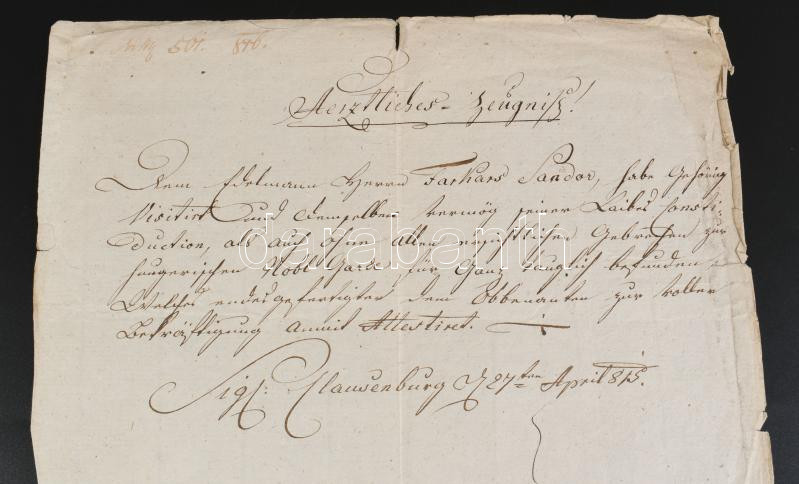 501. 816.
Aerztliches- Zeugniß!
Dem Edelmann Herrn Farkas Sandor, habe Gehörig
Visitirt und demselben vermög seiner Leibes Consti-
duction, als auch ohne allen ersichtlichen Gebrechen zur
hungerischen Nobl Garde, für Ganz tauglich befunden
Welches endesgefertigter dem Obbenanten zur voller
Bekräftigung anmit Attestiret.
Sigl: Clausenburg 27ten April 815.
darabanth